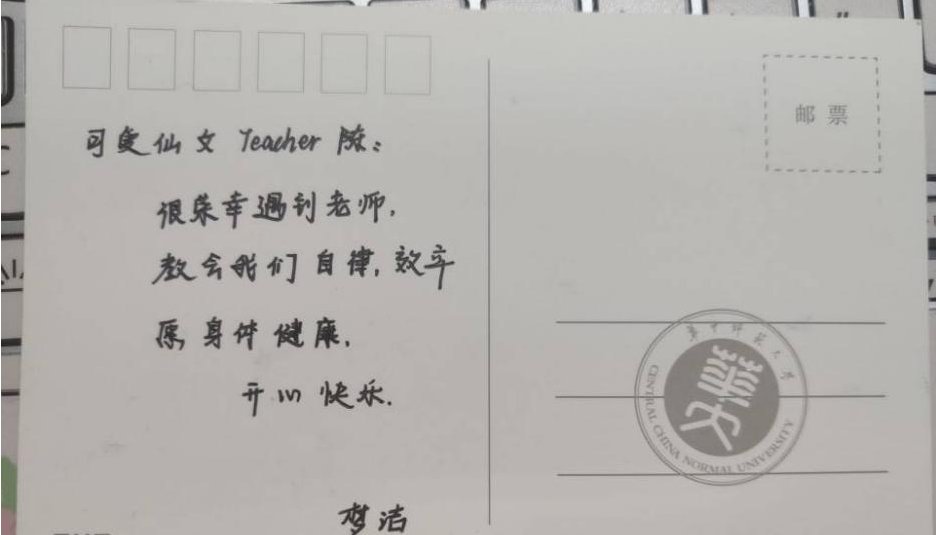 可爱仙女 Teacher 陈:
很荣幸遇到老师,
教会我们自律,效率
愿身体健康,
开心快乐.
梦洁
邮票
华中师范大学
CENTRAL CHINA NORMAL UNIVERSITY